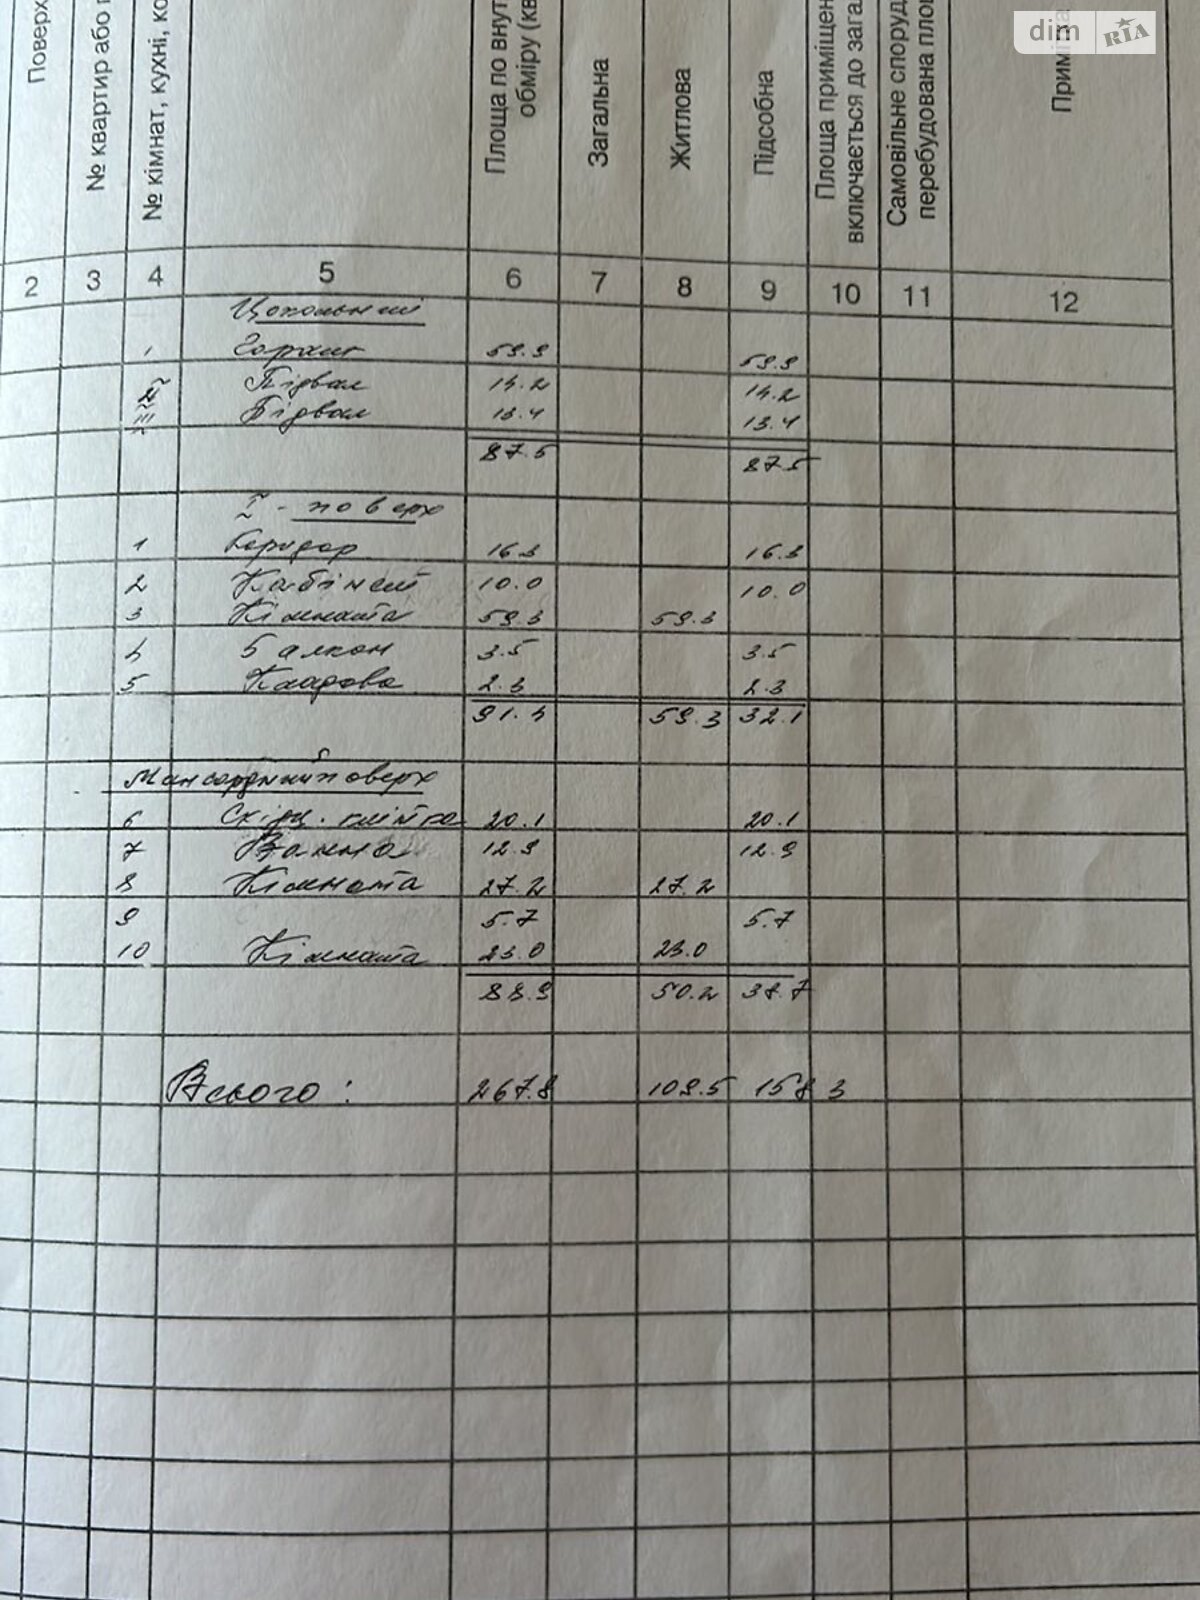 dim RIA
Поверх
№ квартир або п
№ кімнат, кухні, ко
Площа по внут
обміру (кв
Загальна
Житлова
Підсобна
Площа приміщен
включається до зага
Самовільне споруд
перебудована пло
Примі
2 3 4 5 6 7 8 9 10 11 12
Цокольний
I 59.9 59.9
II Підвал 14.2 14.2
III Підвал 13.4 13.4
87.5 87.5
I - поверх
1 Коридор 16.3 16.3
2 Кабінет 10.0 10.0
3 Кімната 59.3 59.3
4 Балкон 3.5 3.5
5 Кладова 2.3 2.3
91.4 59.3 32.1
Мансардний поверх
6 Східц. клітка 20.1 20.1
7 Ванна 12.9 12.9
8 Кімната 27.2 27.2
9 5.7 5.7
10 Кімната 23.0 23.0
88.9 50.2 38.7
Всього: 267.8 109.5 158 3